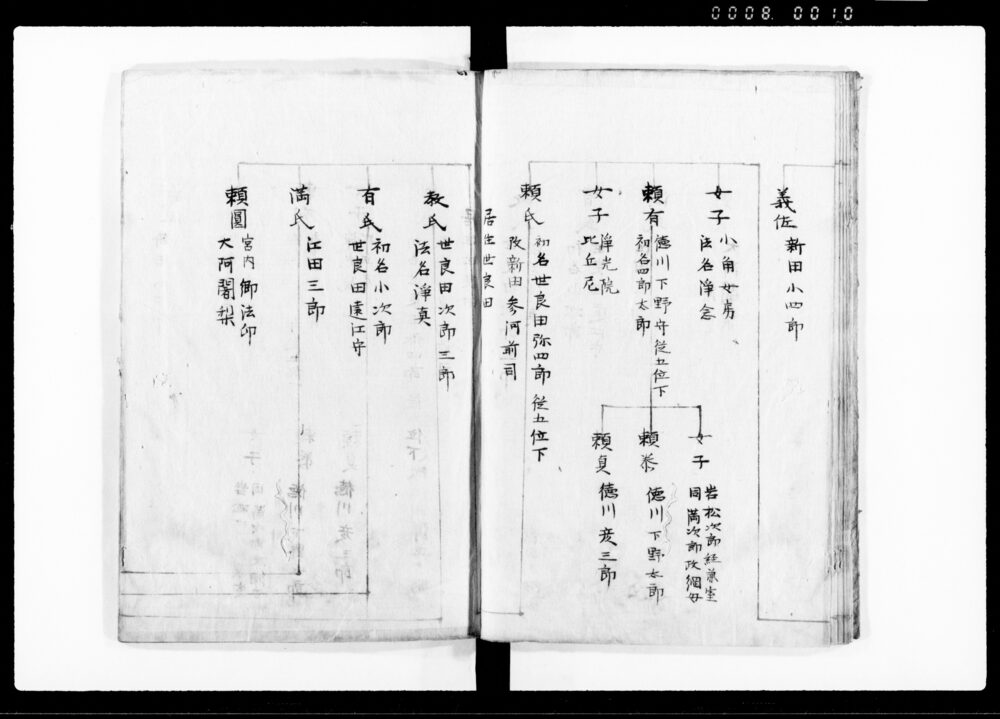 0008. 0010
義佐 新田小四郎
女子 小角女房
法名淨念
頼有 徳川下野守従五位下
初名四郎太郎
女子 岩松次郎経兼室
同満次郎政綱母
頼泰 徳川下野太郎
頼貞 徳川彦三郎
女子 淨光院
比丘尼
頼氏 初名世良田弥四郎 従五位下
改新田参河前司
居住世良田
教氏 世良田次郎三郎
法名淨真
有氏 初名小次郎
世良田遠江守
満氏 江田三郎
頼圓 宮内卿法印
大阿闍梨